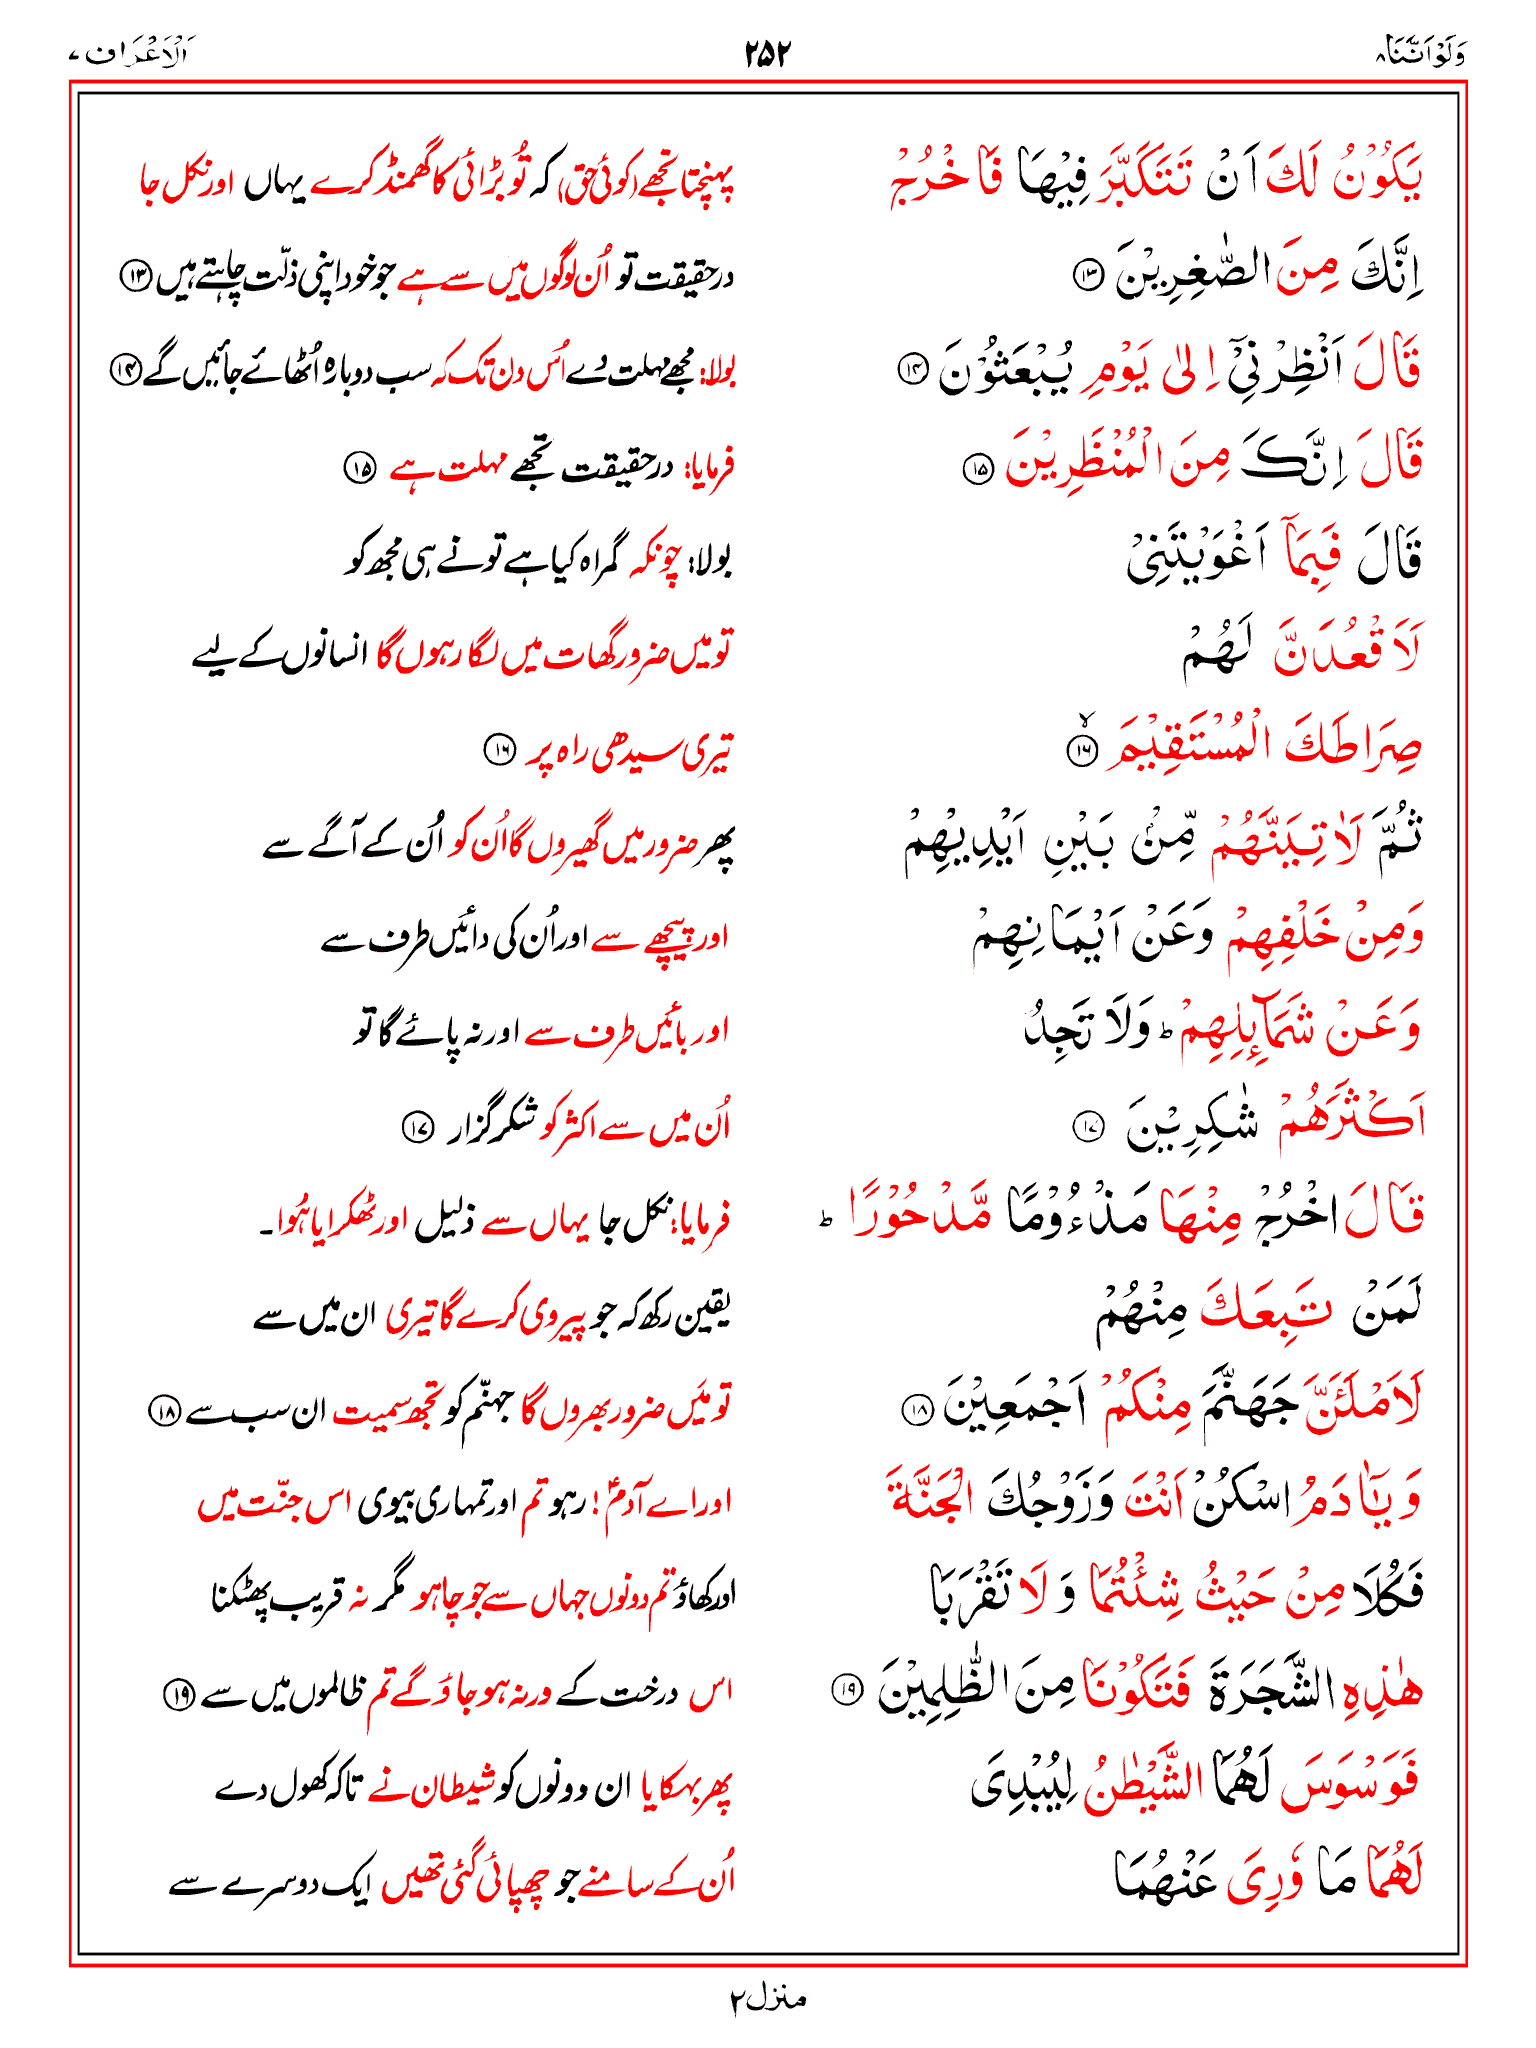 وَلَوْاَنَّنَا ۸
۲۵۲
اَلْاَعْرَاف ۷
يَكُوْنُ لَكَ اَنْ تَتَكَبَّرَ فِيْهَا فَاخْرُجْ
پہنچتا تجھے (کوئی حق) کہ تُو بڑائی کا گھمنڈ کرے یہاں اور نکل جا
اِنَّكَ مِنَ الصّٰغِرِيْنَ ۝۱۳
درحقیقت تو اُن لوگوں میں سے ہے جو خود اپنی ذلّت چاہتے ہیں ۝۱۳
قَالَ اَنْظِرْنِيْٓ اِلٰى يَوْمِ يُبْعَثُوْنَ ۝۱۴
بولا: مجھے مہلت دے اُس دن تک کہ سب دوبارہ اُٹھائے جائیں گے ۝۱۴
قَالَ اِنَّكَ مِنَ الْمُنْظَرِيْنَ ۝۱۵
فرمایا: درحقیقت تجھے مہلت ہے ۝۱۵
قَالَ فَبِمَآ اَغْوَيْتَنِيْ
بولا: چونکہ گمراہ کیا ہے تو نے ہی مجھ کو
لَاَقْعُدَنَّ لَهُمْ
تو میں ضرور گھات میں لگا رہوں گا انسانوں کے لیے
صِرَاطَكَ الْمُسْتَقِيْمَ ۝۱۶ۙ
تیری سیدھی راہ پر ۝۱۶
ثُمَّ لَاٰتِيَنَّهُمْ مِّنْۢ بَيْنِ اَيْدِيْهِمْ
پھر ضرور میں گھیروں گا اُن کو اُن کے آگے سے
وَمِنْ خَلْفِهِمْ وَعَنْ اَيْمَانِهِمْ
اور پیچھے سے اور اُن کی دائیں طرف سے
وَعَنْ شَمَآئِلِهِمْ ؕ وَلَا تَجِدُ
اور بائیں طرف سے اور نہ پائے گا تو
اَكْثَرَهُمْ شٰكِرِيْنَ ۝۱۷
اُن میں سے اکثر کو شکر گزار ۝۱۷
قَالَ اخْرُجْ مِنْهَا مَذْءُوْمًا مَّدْحُوْرًا ؕ
فرمایا: نکل جا یہاں سے ذلیل اور ٹھکرایا ہُوا۔
لَمَنْ تَبِعَكَ مِنْهُمْ
یقین رکھ کہ جو پیروی کرے گا تیری ان میں سے
لَاَمْلَئَنَّ جَهَنَّمَ مِنْكُمْ اَجْمَعِيْنَ ۝۱۸
تو میَں ضرور بھروں گا جہنّم کو تجھ سمیت ان سب سے ۝۱۸
وَيٰٓاٰدَمُ اسْكُنْ اَنْتَ وَزَوْجُكَ الْجَنَّةَ
اور اے آدمؑ! رہو تم اور تمہاری بیوی اس جنّت میں
فَكُلَا مِنْ حَيْثُ شِئْتُمَا وَلَا تَقْرَبَا
اور کھاؤ تم دونوں جہاں سے جو چاہو مگر نہ قریب پھٹکنا
هٰذِهِ الشَّجَرَةَ فَتَكُوْنَا مِنَ الظّٰلِمِيْنَ ۝۱۹
اس درخت کے ورنہ ہو جاؤ گے تم ظالموں میں سے ۝۱۹
فَوَسْوَسَ لَهُمَا الشَّيْطٰنُ لِيُبْدِيَ
پھر بہکایا ان دونوں کو شیطان نے تاکہ کھول دے
لَهُمَا مَا وٗرِيَ عَنْهُمَا
اُن کے سامنے جو چھپائی گئی تھیں ایک دوسرے سے
منزل ۲